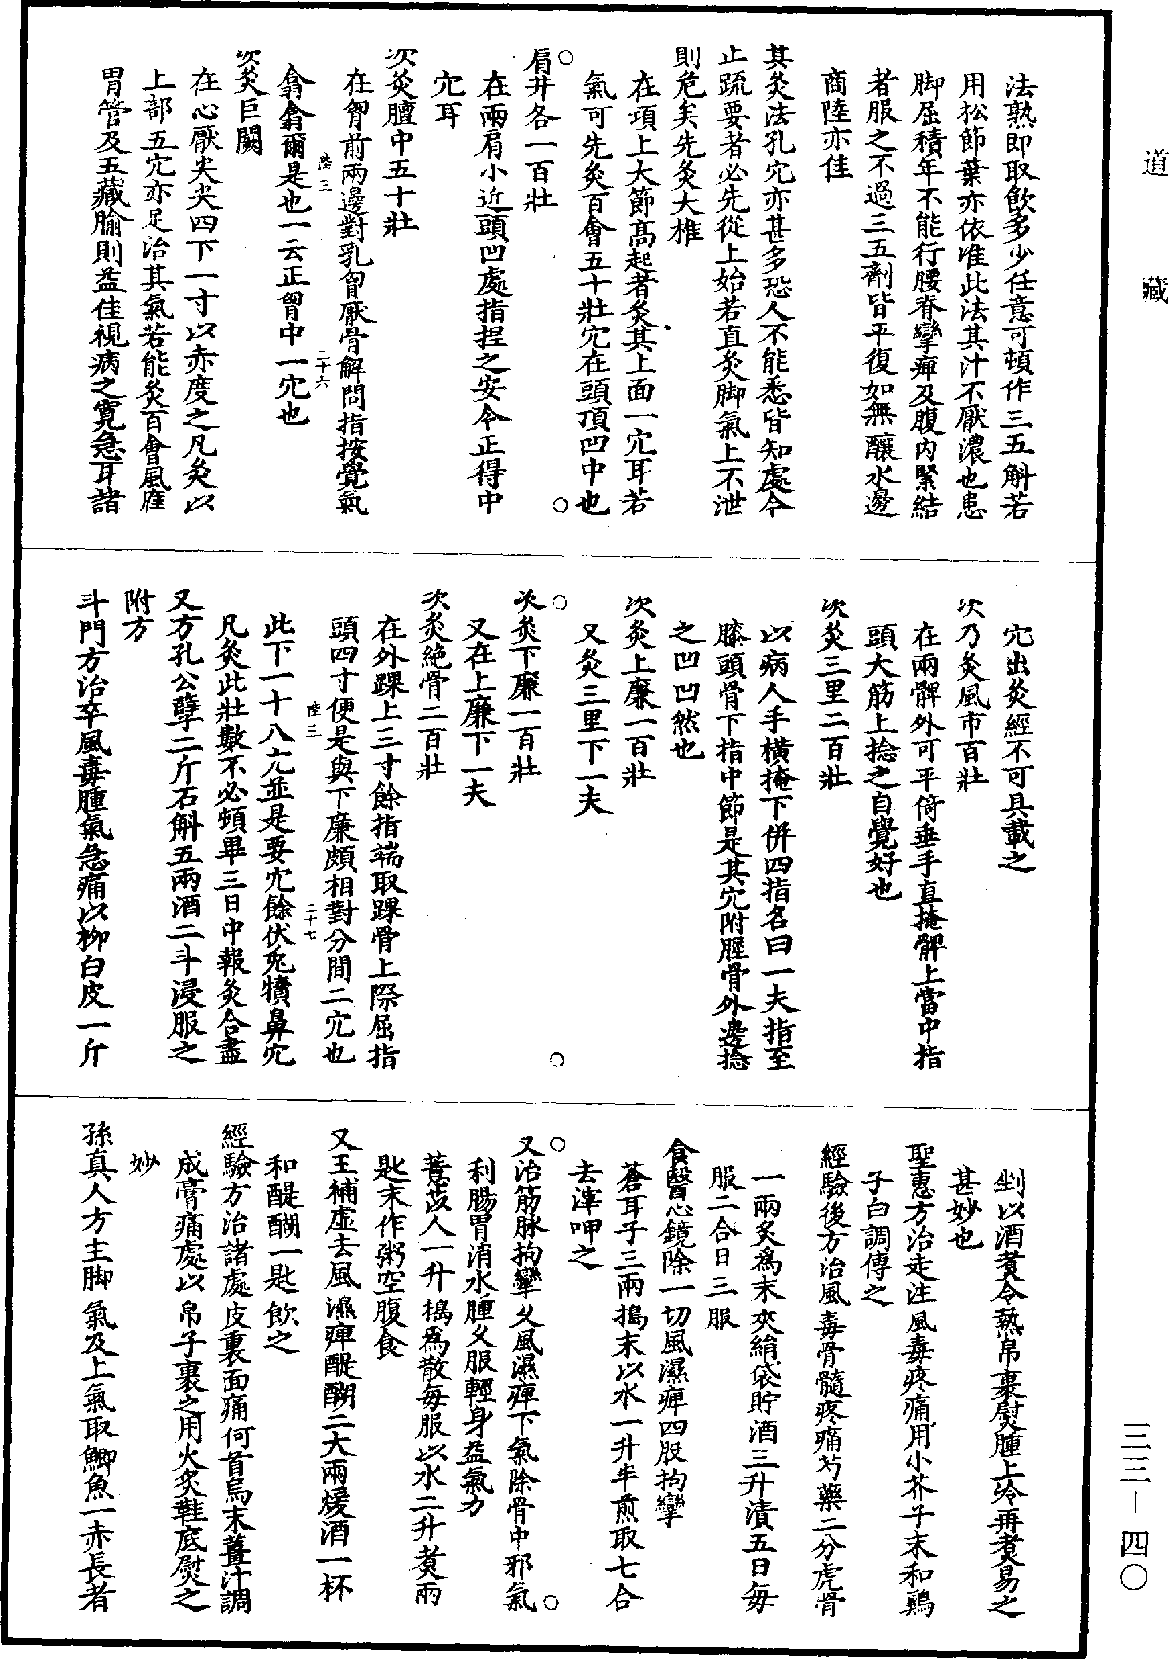 道藏
法熟即取飲多少任意可頓作三五斛若
用松節葉亦依准此法其汁不厭濃也患
脚屈積年不能行腰脊攣痺及腹内緊結
者服之不過三五劑皆平復如無釀水邊
商陸亦佳
其灸法孔穴亦甚多恐人不能悉皆知處今
止疏要者必先從上始若直灸脚氣上不泄
則危矣先灸大椎
在項上大節高起者灸其上面一穴耳若
氣可先灸百會五十壯穴在頭頂凹中也
○肩井各一百壯○
在兩肩小近頭凹處指捏之安令正得中
穴耳
次灸膻中五十壯
在胷前兩邊對乳胷厭骨解間指按覺氣
陸三
二十六
翕翕爾是也一云正胷中一穴也
次灸巨闕
在心厭尖尖四下一寸以赤度之凡灸以
上部五穴亦足治其氣若能灸百會風府
胃管及五藏腧則益佳視病之寬急耳諸
穴出灸經不可具載之
次乃灸風市百壯
在兩髀外可平倚垂手直掩髀上當中指
頭大筋上捻之自覺好也
次灸三里二百壯
以病人手横掩下併四指名曰一夫指至
膝頭骨下指中節是其穴附脛骨外邊捻
之凹凹然也
次灸上廉一百壯
又灸三里下一夫
○次灸下廉一百壯○
又在上廉下一夫
次灸絶骨二百壯
在外踝上三寸餘指端取踝骨上際屈指
頭四寸便是與下廉頗相對分間二穴也
陸三
二十七
此下一十八穴並是要穴餘伏兎犢鼻穴
凡灸此壯數不必頓畢三日中報灸合盡
又方孔公孽二斤石斛五兩酒二斗浸服之
附方
斗門方治卒風毒腫氣急痛以柳白皮一斤
剉以酒煑令熱帛裹熨腫上冷再煑易之
甚妙也
聖惠方治走注風毒疼痛用小芥子末和鷄
子白調傅之
經驗後方治風毒骨髓疼痛芍藥二分虎骨
一兩炙爲末夾絹袋貯酒三升漬五日每
服二合日三服
食醫心鏡除一切風濕痺四股拘攣
蒼耳子三兩搗末以水一升半煎取七合
去滓呷之
○又治筋脉拘攣乆風濕痺下氣除骨中邪氣○
利腸胃消水腫乆服輕身益氣力
薏苡人一升搗爲散每服以水二升煑兩
匙末作粥空腹食
又王補虚去風濕痺醍醐二大兩煖酒一杯
和醍醐一匙飲之
經驗方治諸處皮裏面痛何首烏末薑汁調
成膏痛處以帛子裹之用火炙鞋底熨之
妙
孫真人方主脚氣及上氣取鯽魚一赤長者
三三－四〇